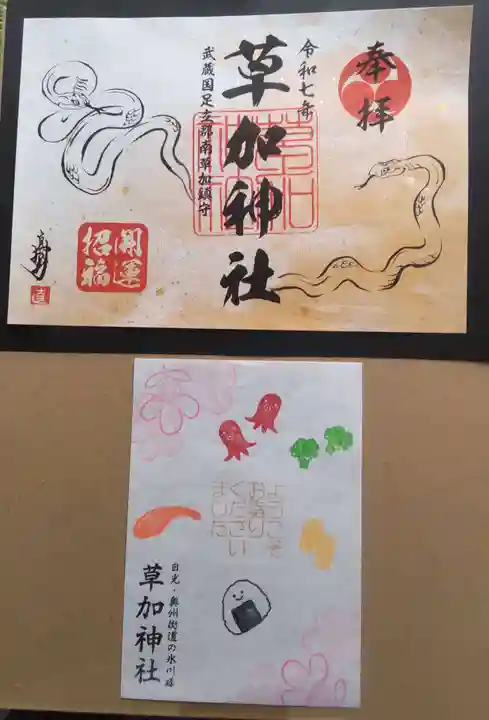 奉拝
令和七年
草加神社
武蔵国足立郡南草加鎮守
開運
招福
直
ようこそ
お参り
くださいました
日光・奥州街道の氷川様
草加神社